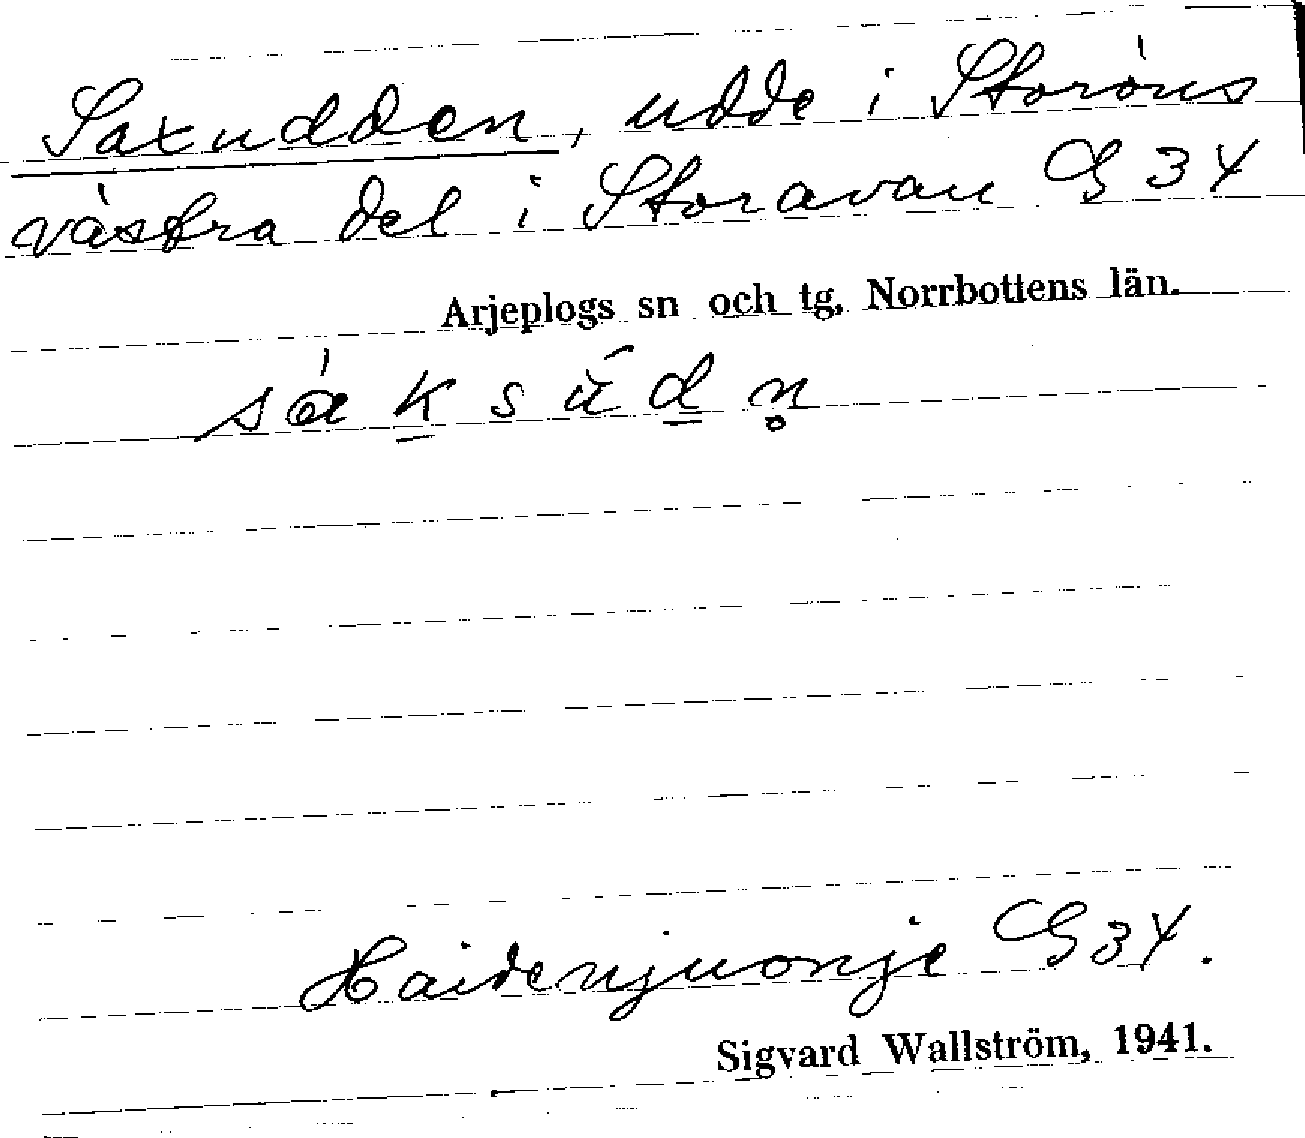 Saxudden, udde i Storöns
västra del i Storavan G 34
Arjeplogs sn och tg, Norrbottens län.
sá̱ksŭ́dn̥
Haidenjuonje G 34.
Sigvard Wallström, 1941.